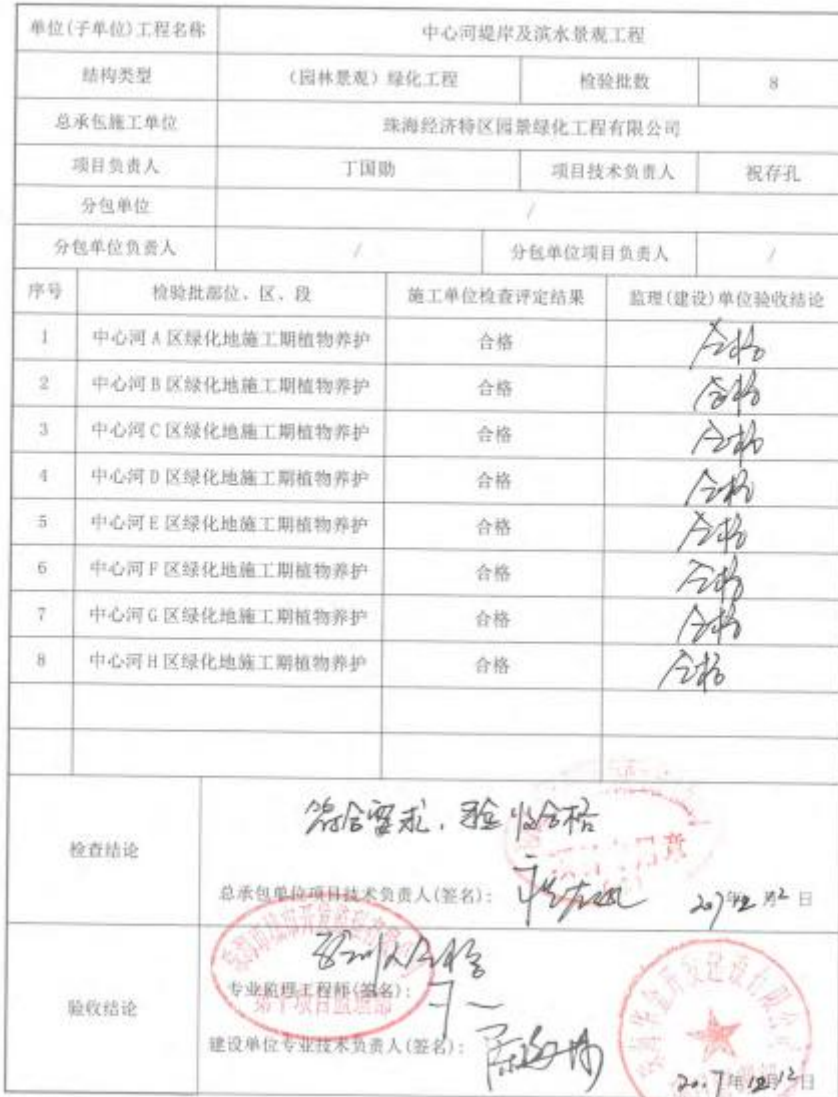 单位(子单位)工程名称 中心河堤岸及滨水景观工程
结构类型 (园林景观)绿化工程 检验批数 8
总承包施工单位 珠海经济特区园景绿化工程有限公司
项目负责人 丁国勋 项目技术负责人 祝存孔
分包单位 /
分包单位负责人 / 分包单位项目负责人 /
序号 检验批部位、区、段 施工单位检查评定结果 监理(建设)单位验收结论
1 中心河A区绿化地施工期植物养护 合格 合格
2 中心河B区绿化地施工期植物养护 合格 合格
3 中心河C区绿化地施工期植物养护 合格 合格
4 中心河D区绿化地施工期植物养护 合格 合格
5 中心河E区绿化地施工期植物养护 合格 合格
6 中心河F区绿化地施工期植物养护 合格 合格
7 中心河G区绿化地施工期植物养护 合格 合格
8 中心河H区绿化地施工期植物养护 合格 合格
符合要求,验收合格
检查结论
总承包单位项目技术负责人(签名): 2017年12月2日
专业监理工程师(签名):
验收结论
建设单位专业技术负责人(签名):
2017年12月12日